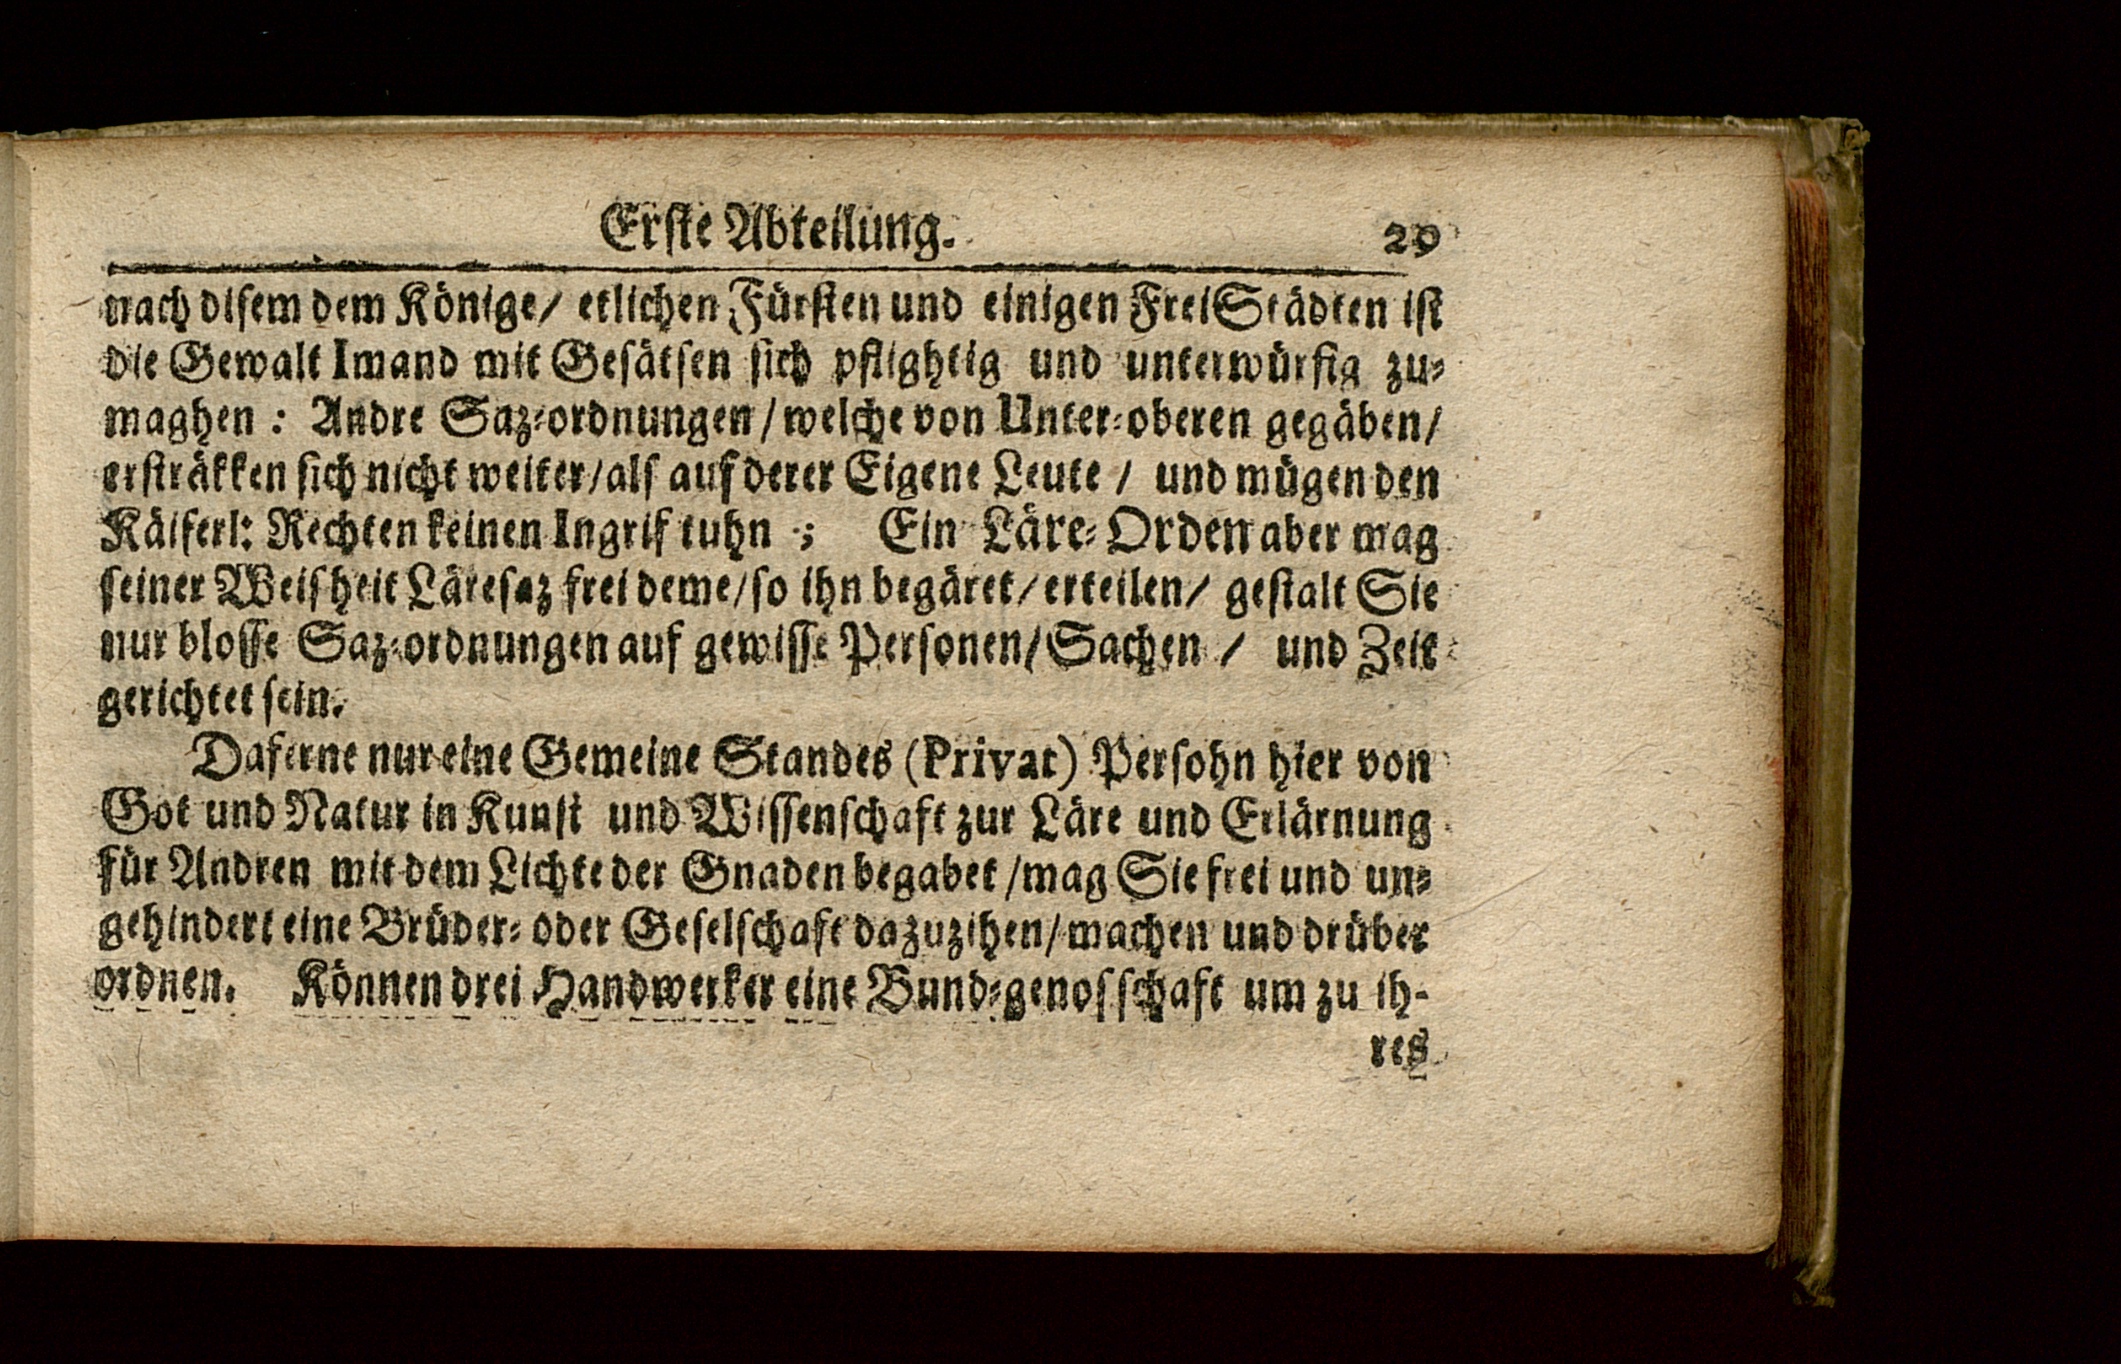 Erste Abteilung. 29
nach disem dem Könige/ etlichen Fürsten und einigen FreiStädten ist
die Gewalt Imand mit Gesätsen sich pflightig und unterwürfig zu-
maghen : Andre Saz-ordnungen / welche von Unter-oberen gegäben/
ersträkken sich nicht weiter/als auf derer Eigene Leute / und mügen den
Käiserl: Rechten keinen Ingrif tuhn ; Ein Läre-Orden aber mag
seiner Weisheit Läresaz frei deme/so ihn begäret/erteilen/ gestalt Sie
nur blosse Saz-ordnungen auf gewisse Personen/Sachen / und Zeit
gerichtet sein.
Daferne nur eine Gemeine Standes (Privat) Persohn hier von
Got und Natur in Kunst und Wissenschaft zur Läre und Erlärnung
für Andren mit dem Lichte der Gnaden begabet /mag Sie frei und un-
gehindert eine Brüder- oder Geselschaft dazuzihen/machen und drüber
ordnen. Können drei Handwerker eine Bund-genosschaft um zu ih-
res